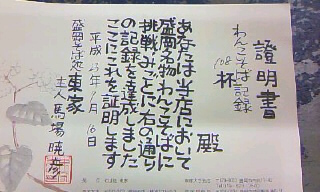 證明書
わんこそば記録
108杯
殿
あなたは当店において
盛岡名物わんこそばに
挑戦みごとに右の通り
の記録を達成しました
ここにこれを証明します
平成
年1月16日
盛岡
東家
主人 馬場暁彦